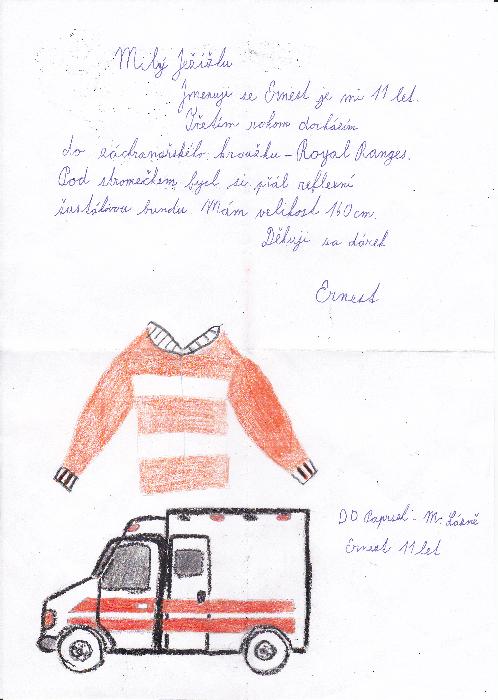 Milý Ježíšku
Jmenuji se Ernest je mi 11 let.
Třetím rokem docházím
do záchranařského kroužku - Royal Ranges.
Pod stromečkem bych si přál reflexní
šustákovou bundu. Mám velikost 160 cm.
Děkuji za dárek
Ernest
DD Paprsek - M. Lázně
Ernest 11 let